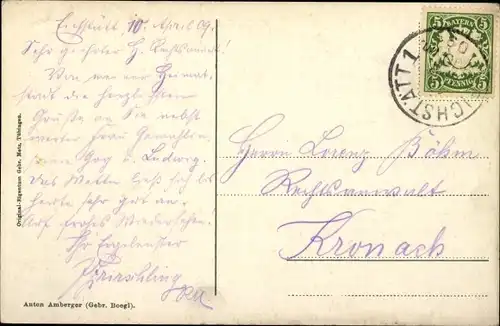 Eichstätt, 10. April 09.
Sehr geehrter H. Rechtsanwalt!
Von der Heimat-
stadt die herzlichsten
Grüße an Sie nebst
werter Frau Gemahlin,
u. Ludwig.
Das Wetter läßt sich bis
heute sehr gut an.
Auf frohes Wiedersehen!
Ihr Ergebenster
Original-Eigentum Gebr. Metz, Tübingen.
Anton Amberger (Gebr. Boegl).
BAYERN
5 5
PFENNIG
EICHSTÄTT 1
Herrn Lorenz Böhm
Rechtsanwalt
Kronach